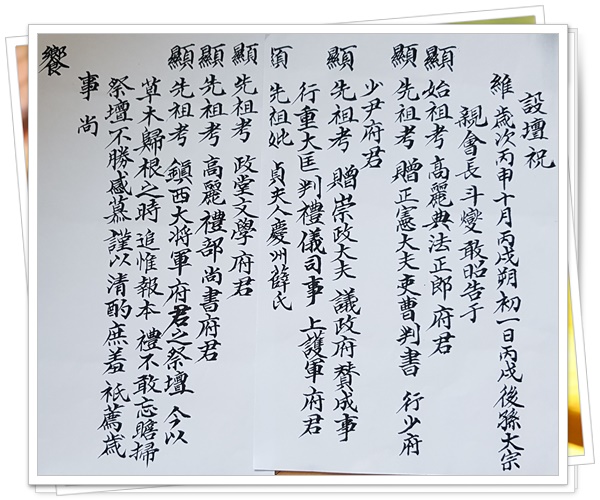 設壇祝
維 歲次丙申十月丙戌朔初一日丙戌後孫大宗
親會長 斗燮 敢昭告于
顯 始祖考 高麗典法正郞 府君
顯 先祖考 贈正憲大夫吏曹判書 行少府
少尹府君
顯 先祖考 贈崇政大夫 議政府贊成事
行重大匡判禮儀司事 上護軍府君
先祖妣 貞夫人慶州薛氏
顯 先祖考 政堂文學府君
顯 先祖考 高麗禮部尚書府君
顯 先祖考 鎭西大将軍府君之祭壇 今以
草木歸根之時 追惟報本 禮不敢忘瞻掃
祭壇不勝感慕謹以清酌庶羞 祗薦歲
事 尚
饗